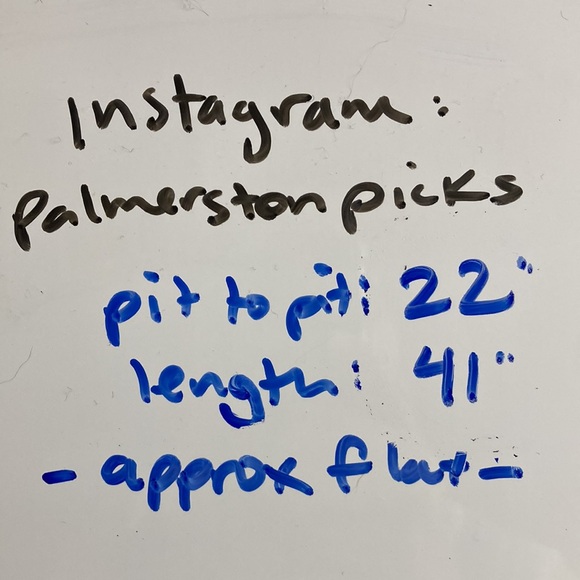 Instagram:
palmerston picks
pit to pit: 22"
length: 41"
- approx flat -